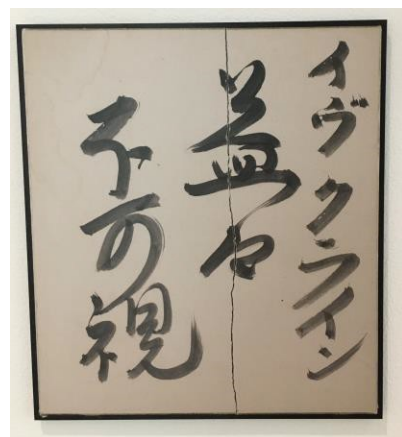 イヴクライン
益々
不可視